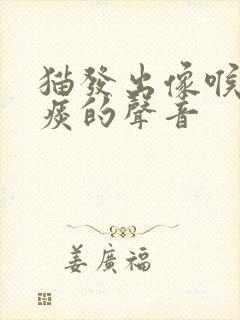 猫發出像喉
痰的聲音
姜廣福